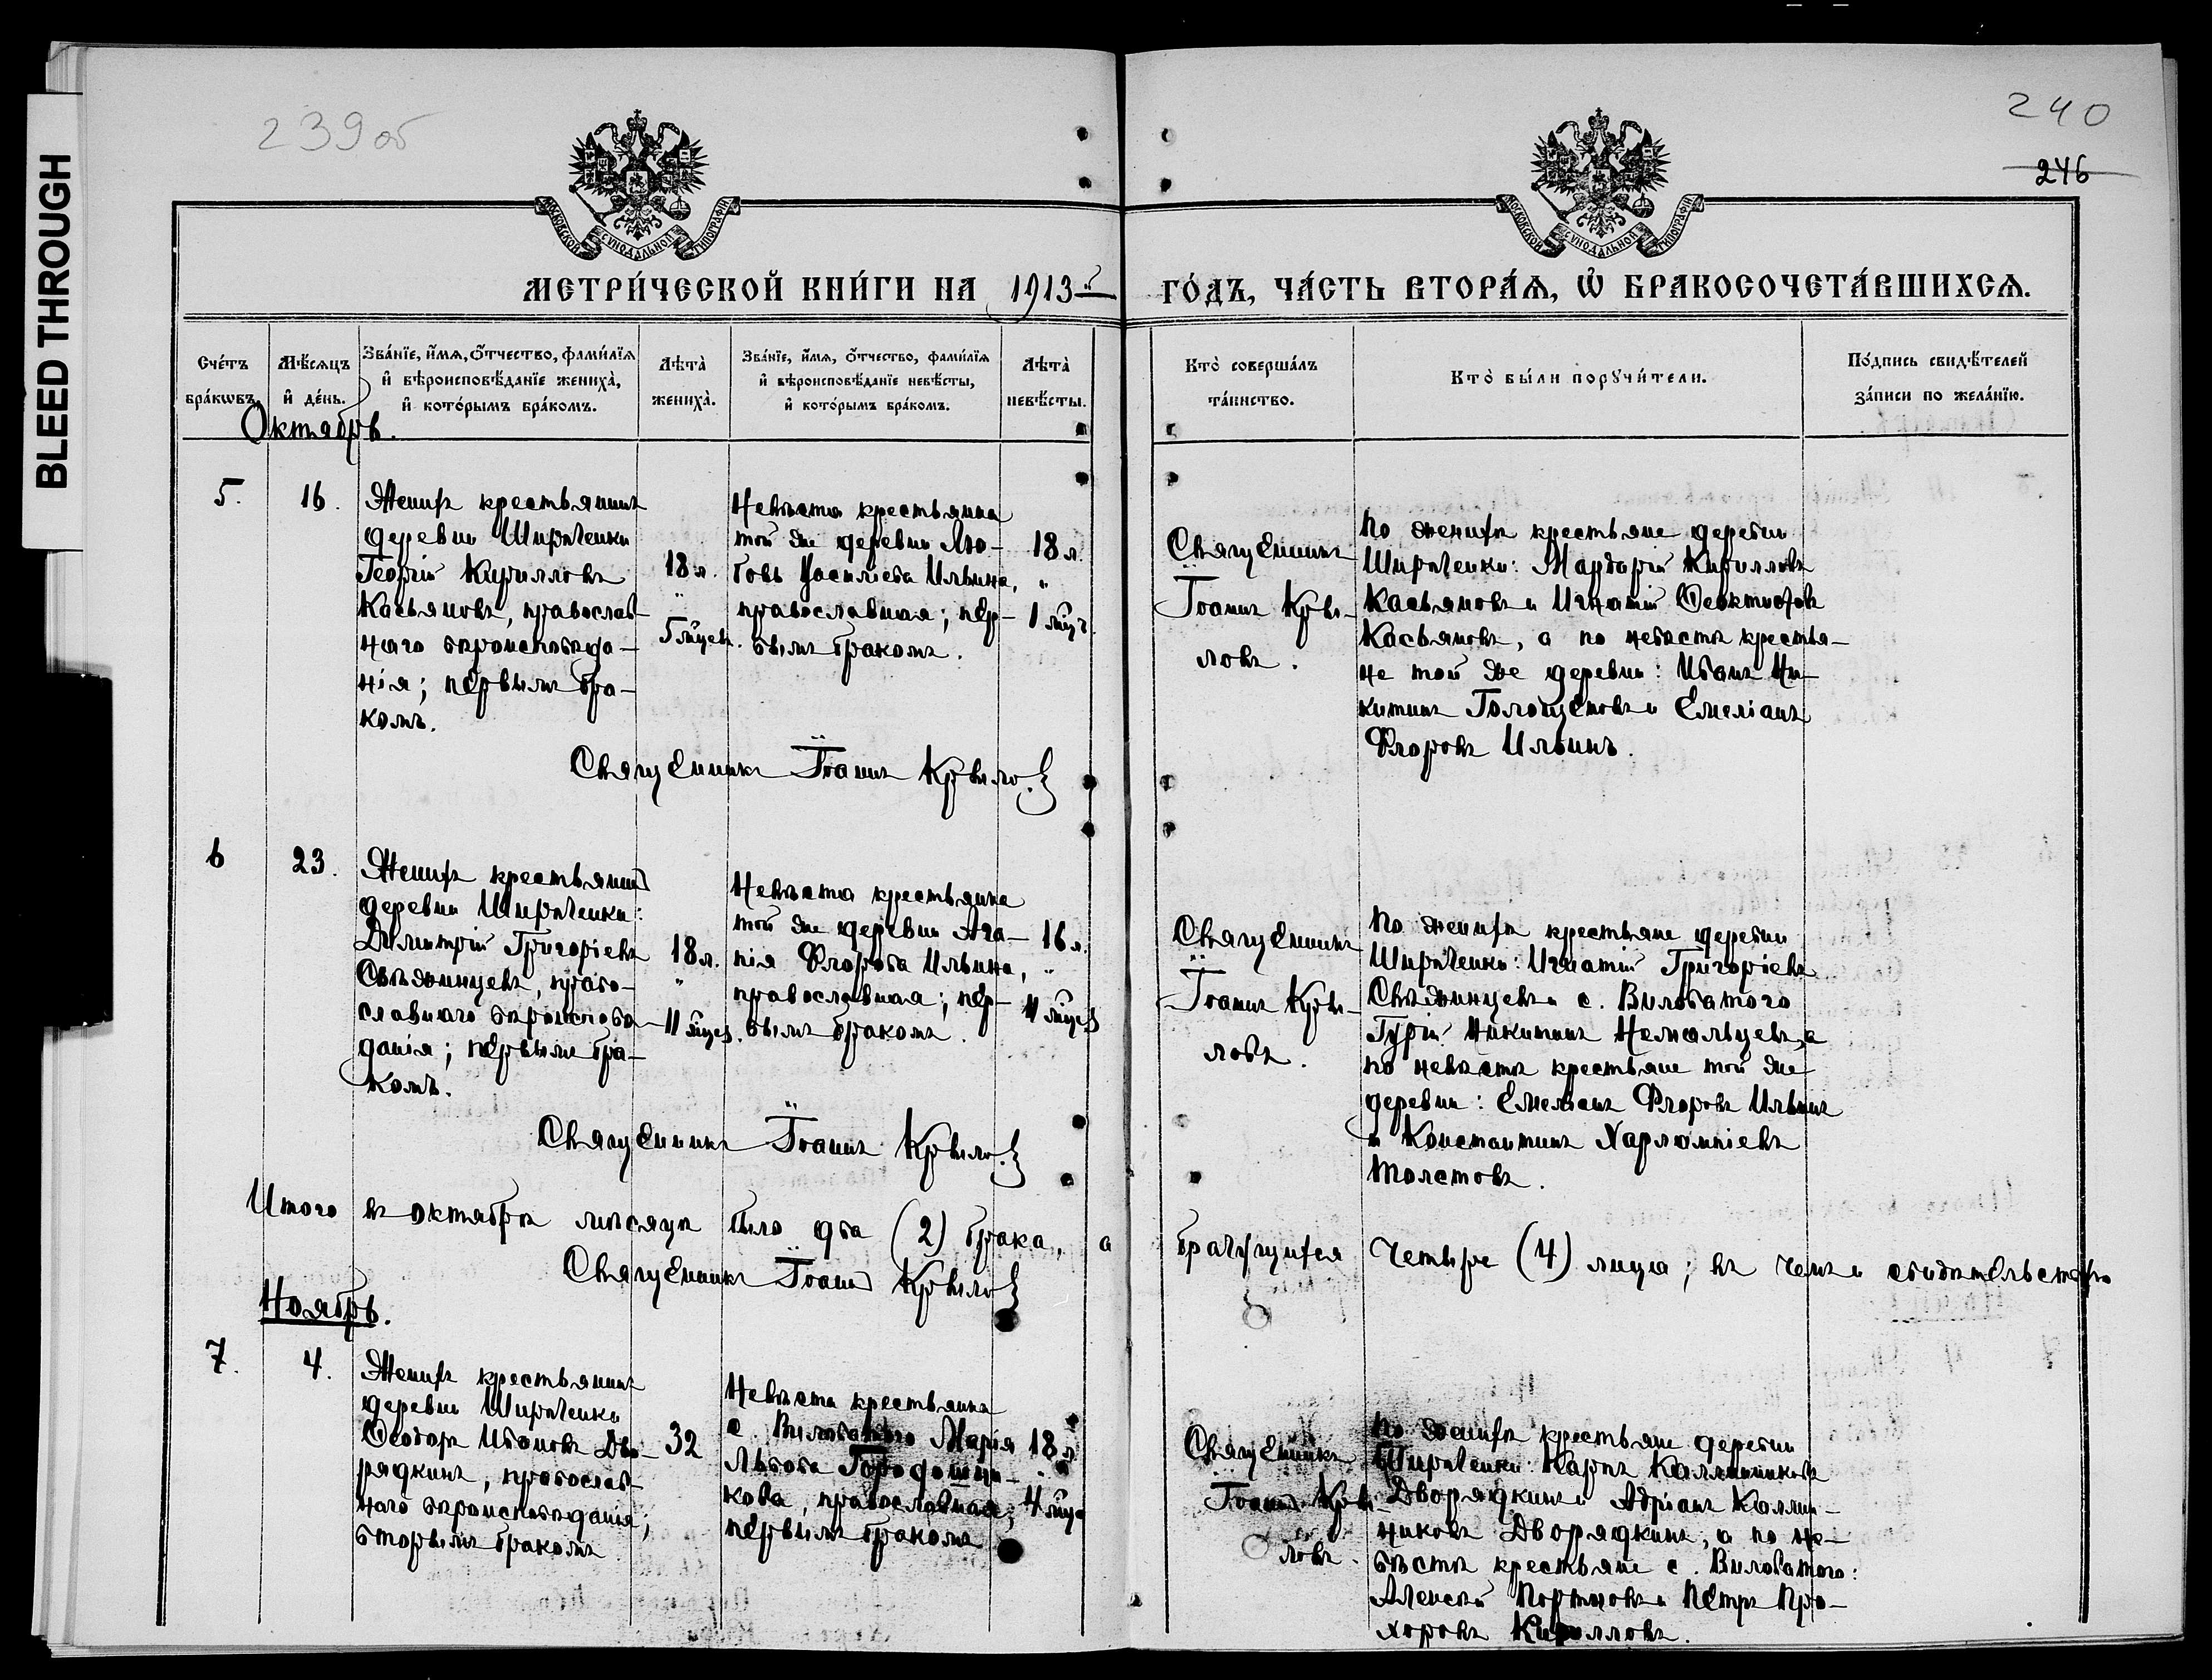 BLEED THROUGH
239 об
240
246
МОСКОВСКОЙ СУНОДАЛЬНОЙ ТИПОГРАФІИ
МОСКОВСКОЙ СУНОДАЛЬНОЙ ТИПОГРАФІИ
МЕТРИ́ЧЕСКОЙ КНИ́ГИ НА 1913й ГО́ДЪ, ЧА́СТЬ ВТОРА́Ѧ, Ѽ БРАКОСОЧЕТА́ВШИХСѦ.
Сче́тъ бра́кѡвъ.
Мѣ́сѧцъ и҆ де́нь.
Зва́нїе, и҆́мѧ, ѻ҆́тчество, фами́лїѧ и҆ вѣроисповѣ́данїе жениха̀, и҆ кото́рымъ бра́комъ.
Лѣта̀ жениха̀.
Зва́нїе, и҆́мѧ, ѻ҆́тчество, фами́лїѧ и҆ вѣроисповѣ́данїе невѣ́сты, и҆ кото́рымъ бра́комъ.
Лѣта̀ невѣ́сты.
Кто̀ соверша́лъ та́инство.
Кто̀ бы́ли порꙋчи́тели.
По́дпись свидѣ́телей за́писи по жела́нїю.
Октябрь.
5.
16.
Женихъ крестьянинъ
деревни Ширяченки
Георгій Кирилловъ
Касьяновъ, православ-
наго вѣроисповѣда-
нія; первымъ бра-
комъ.
18 л.
"
5 мѣсец.
Невѣста крестьянка
той же деревни Лю-
бовь Васильева Ильина,
православная; пер-
вымъ бракомъ.
18 л.
"
1 мѣс.
Священникъ
Іоаннъ Кры-
ловъ.
По женихѣ крестьяне деревни
Ширяченки: Мардарій Кирилловъ
Касьяновъ и Игнатій Ѳеоктистовъ
Касьяновъ, а по невѣстѣ крестья-
не той же деревни: Иванъ Ни-
китинъ Голощеповъ и Емеліанъ
Флоровъ Ильинъ.
Священникъ Іоаннъ Крылов
6
23.
Женихъ крестьянин
деревни Ширяченки:
Димитрій Григоріевъ
Свѣжинцевъ, право-
славнаго вѣроисповѣ-
данія; первымъ бра-
комъ.
18 л.
"
11 мѣсец.
Невѣста крестьянка
той же деревни Ага-
пія Флорова Ильина,
православная; пер-
вымъ бракомъ.
16 л.
"
11 мѣсец
Священникъ
Іоаннъ Кры-
ловъ.
По женихѣ крестьяне деревни
Ширяченки: Игнатій Григоріевъ
Свѣжинцевъ и с. Виловатого
Гурій Никитинъ Немальцевъ, а
по невѣстѣ крестьяне той же
деревни: Емеліанъ Флоровъ Ильинъ
и Константинъ Харлампіевъ
Толстовъ.
Священникъ Іоаннъ Крылов
Итого въ октябрѣ мѣсяцѣ было два (2) брака, а брачущихся четыре (4) лица; въ чемъ и свидѣтельствую
Священникъ Іоанн Крылов
Ноябрь.
7.
4.
Женихъ крестьянинъ
деревни Ширяченки
Ѳеодоръ Ивановъ Дво-
рядкинъ, православ-
наго вѣроисповѣданія;
вторымъ бракомъ
32
Невѣста крестьянка
с. Виловатого Марія
Львова Городошни-
кова, православная;
первымъ бракомъ
18 л
"
4 мѣс
Священникъ
Іоанн Кры-
ловъ.
По женихѣ крестьяне деревни
Ширяченки: Карпъ Каллинниковъ
Дворядкинъ и Адріанъ Каллин-
никовъ Дворядкинъ, а по не-
вѣстѣ крестьяне с. Виловатого:
Алексѣй Портновъ и Петръ Про-
хоровъ Кирилловъ.